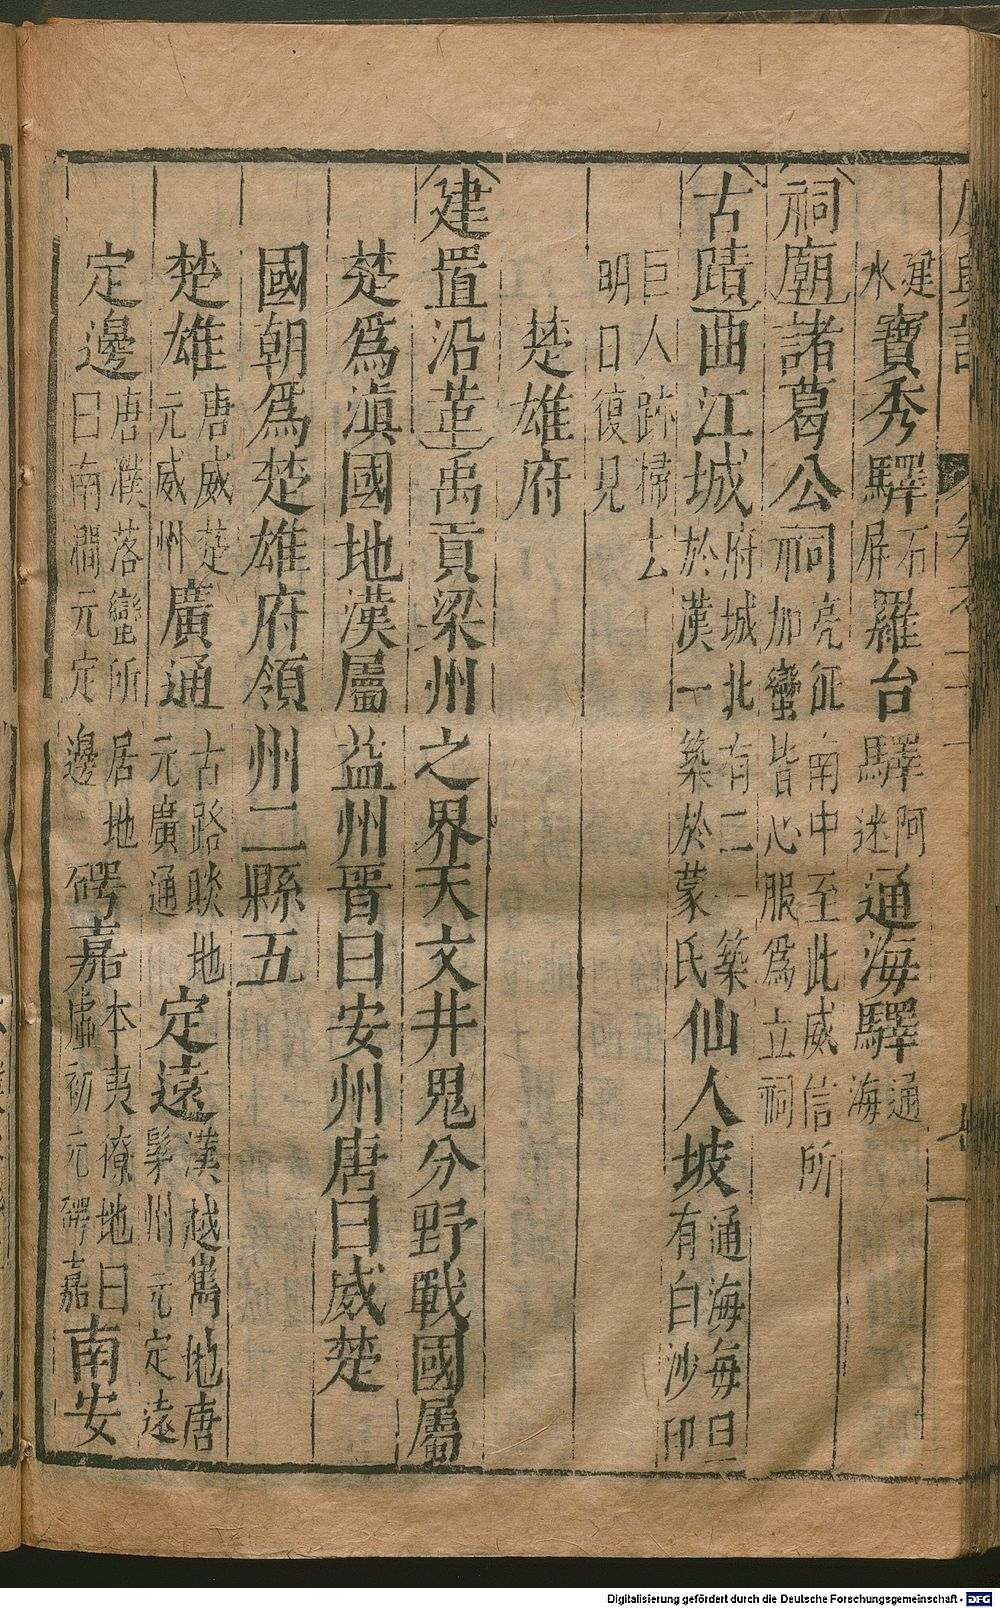 廣輿記 卷之二十一
建水 寶秀驛石屏 羅台驛阿迷 通海驛通海
祠廟 諸葛公祠亮征南中至此威信所加蠻皆心服爲立祠
古蹟 曲江城府城北有二一築於漢一築於蒙氏 仙人坡通海海每旦有白沙印
巨人跡掃去明日復見
楚雄府
建置沿革 禹貢梁州之界天文井鬼分野戰國屬
楚爲滇國地漢屬益州晉曰安州唐曰威楚
國朝爲楚雄府領州二縣五
楚雄唐威楚元威州 廣通古路賧地元廣通 定遠漢越雋地唐髳州元定遠
定邊唐濮落蠻所居地曰南澗元定邊 𥔲嘉本夷獠地曰虛初元𥔲嘉 南安
Digitalisierung gefördert durch die Deutsche Forschungsgemeinschaft - DFG